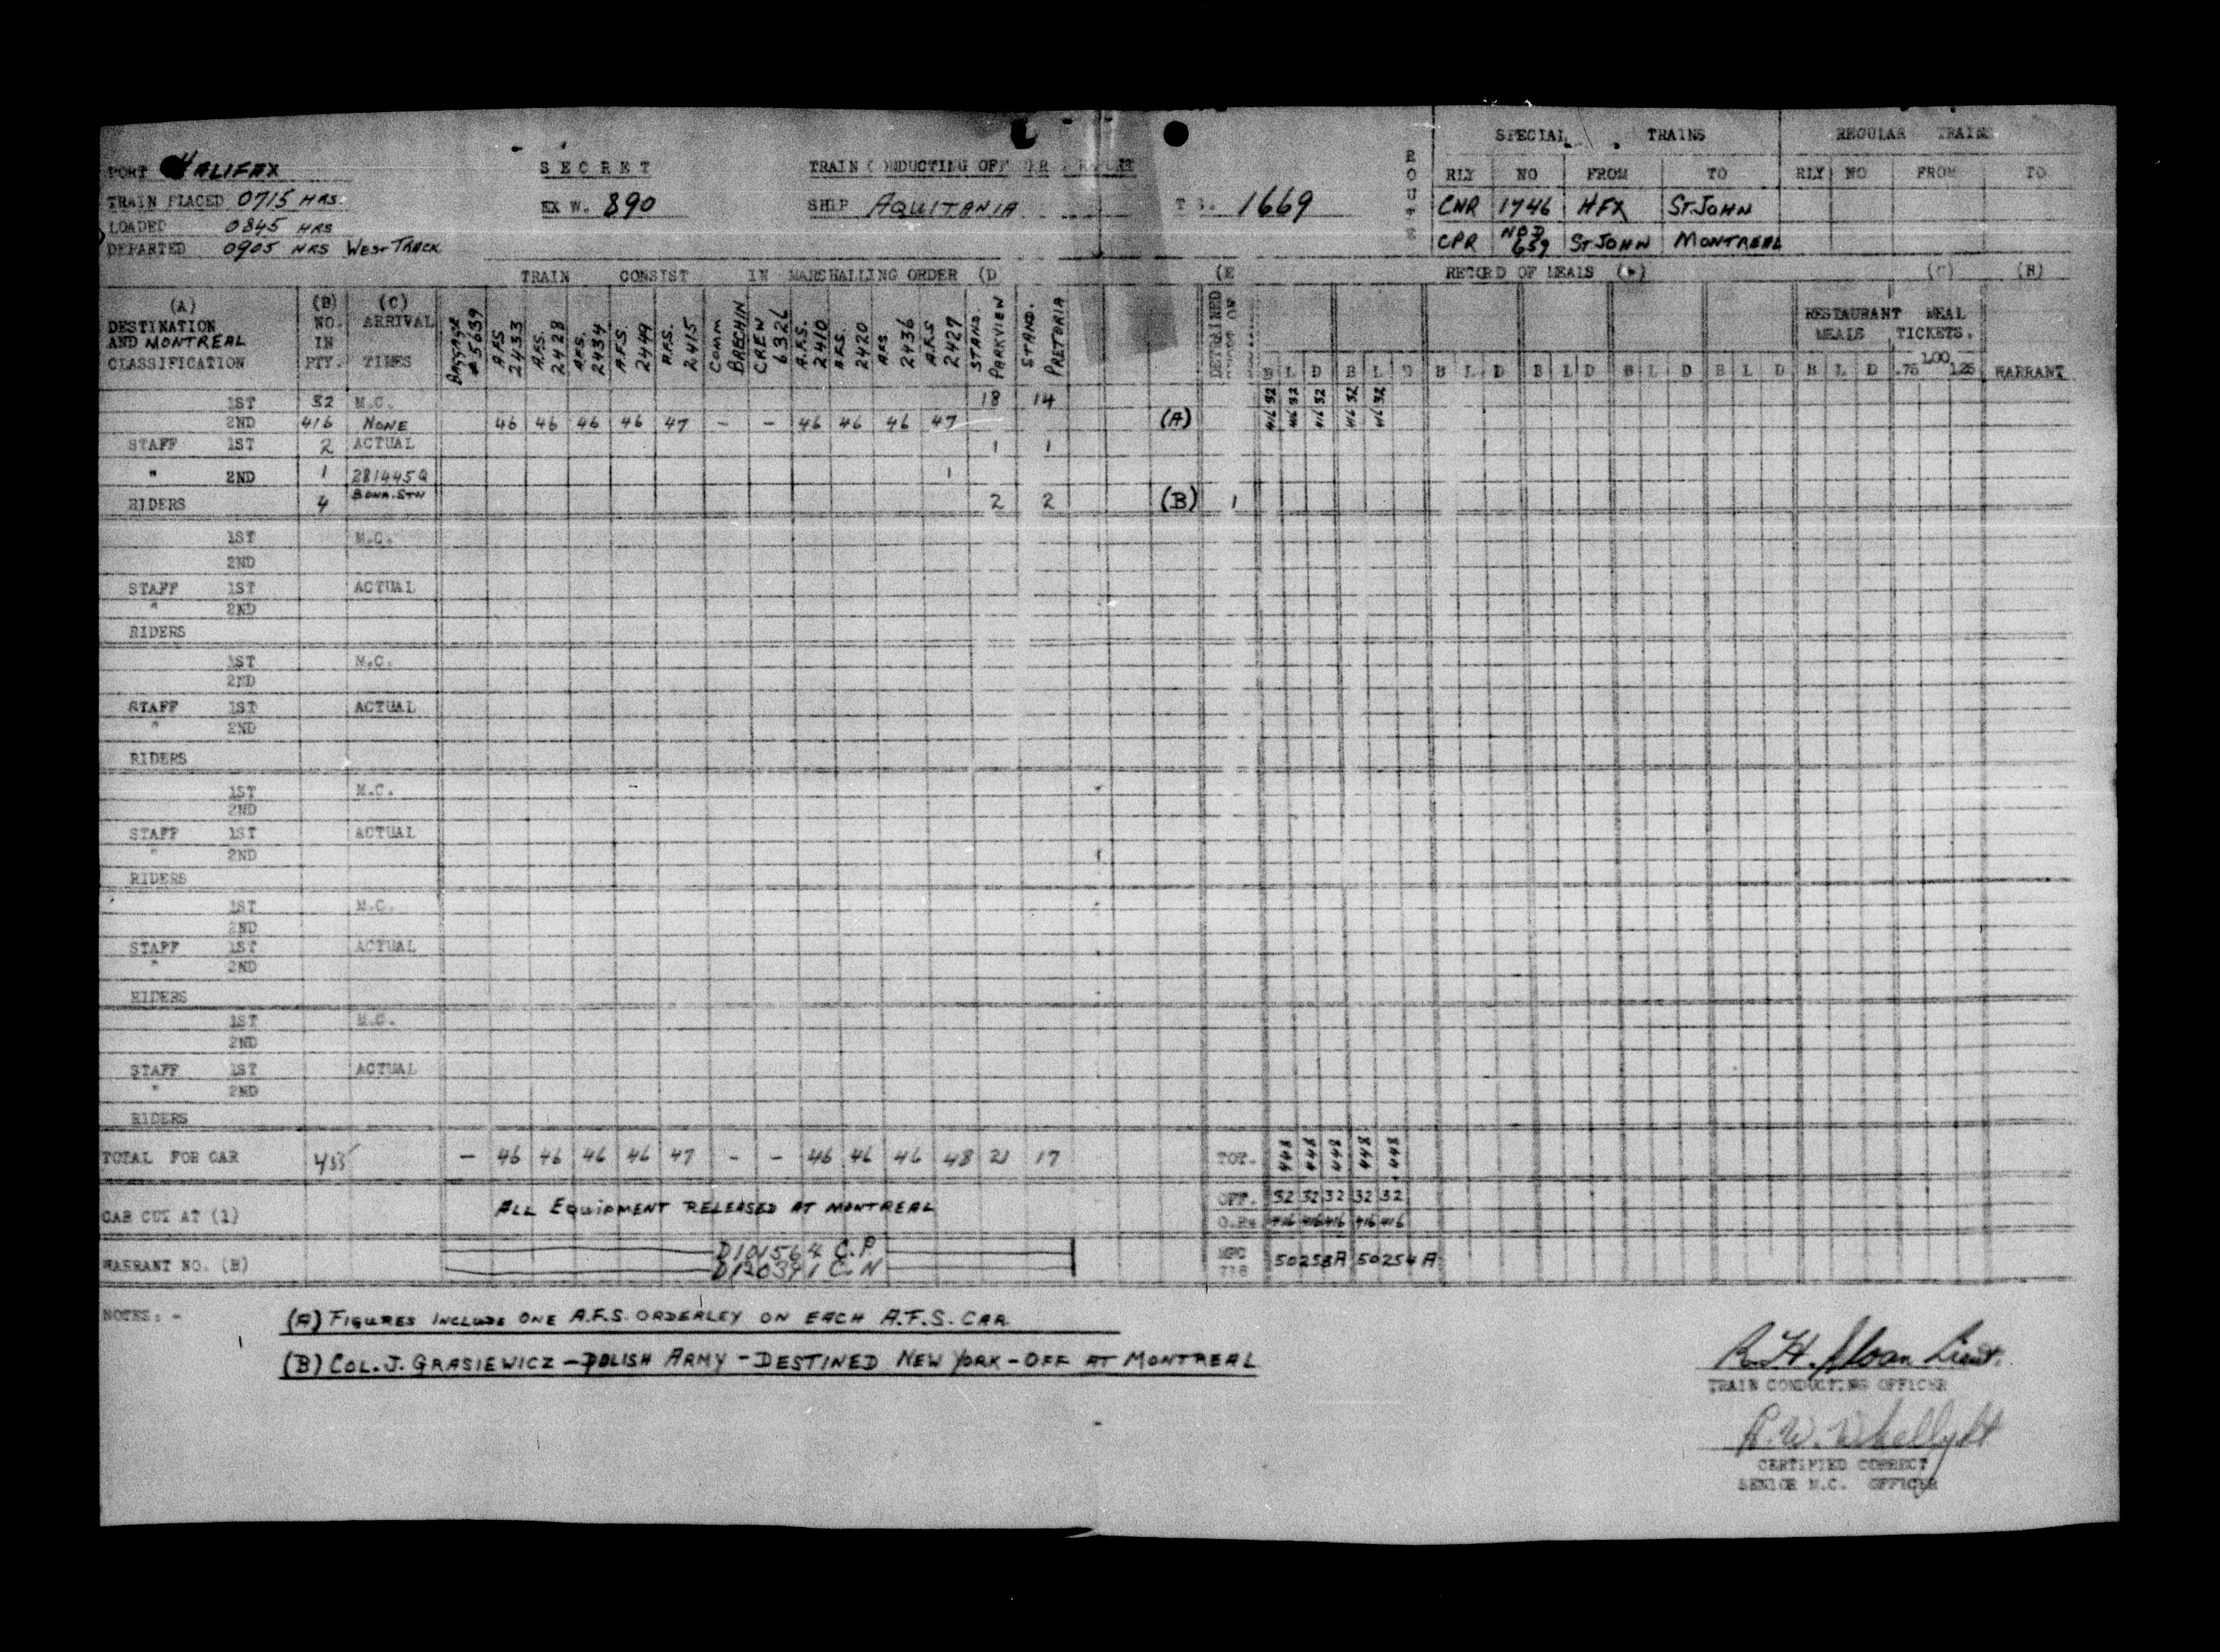 SPECIAL TRAINS REGULAR TRAINS
PORT HALIFAX SECRET TRAIN CONDUCTING OFFICER REPORT
ROUTE RLY NO FROM TO RLY NO FROM TO
TRAIN PLACED 0715 HRS. EX W. 890 SHIP AQUITANIA T S. 1669 CNR 1746 HFX ST JOHN
LOADED 0845 HRS
DEPARTED 0905 HRS WEST TRACK CPR 659 ST JOHN MONTREAL
TRAIN CONSIST IN MARSHALLING ORDER (D (E RECORD OF MEALS (G) (H)
(A) (B) (C)
DESTINATION NO. ARRIVAL
AND MONTREAL IN
CLASSIFICATION PTY. TIMES
BAGGAGE #5639
A.F.S 2433
A.F.S. 2428
A.F.S. 2434
A.F.S 2449
A.F.S. 2415
COMM BRECHIN
CREW 6326
A.F.S. 2410
A.F.S. 2420
A.F.S 2436
A.F.S 2427
STAND. PARKVIEW
STAND. PRETORIA
DETRAINED
RESTAURANT MEAL
MEALS TICKETS.
B L D B L D B L D B L D B L D B L D B L D .75 1.00 1.25 WARRANT
1ST 32 M.C. 18 14 32 32 32 32 32
2ND 416 NONE 46 46 46 46 47 - - 46 46 46 47 (A) 416 416 416 416 416
STAFF 1ST 2 ACTUAL 1 1
" 2ND 1 281445Q 1
BONA. STN
RIDERS 4 2 2 (B) 1
1ST M.C.
2ND
STAFF 1ST ACTUAL
" 2ND
RIDERS
1ST M.C.
2ND
STAFF 1ST ACTUAL
" 2ND
RIDERS
1ST M.C.
2ND
STAFF 1ST ACTUAL
" 2ND
RIDERS
1ST M.C.
2ND
STAFF 1ST ACTUAL
" 2ND
RIDERS
1ST M.C.
2ND
STAFF 1ST ACTUAL
" 2ND
RIDERS
TOTAL FOR CAR 455 - 46 46 46 46 47 - - 46 46 46 48 21 17 TOT. 448 448 448 448 448
OFF. 32 32 32 32 32
CAR CUT AT (1) ALL EQUIPMENT RELEASED AT MONTREAL
O.Rs 416 416 416 416 416
D101564 C.P.
WARRANT NO. (H) D120391 C.N MFC 718 50253A 50254A
NOTES: -
(A) FIGURES INCLUDE ONE A.F.S. ORDERLEY ON EACH A.F.S. CAR
(B) COL. J. GRASIEWICZ - POLISH ARMY - DESTINED NEW YORK - OFF AT MONTREAL
R.H. Sloan Lieut.
TRAIN CONDUCTING OFFICER
CERTIFIED CORRECT
SENIOR M.C. OFFICER